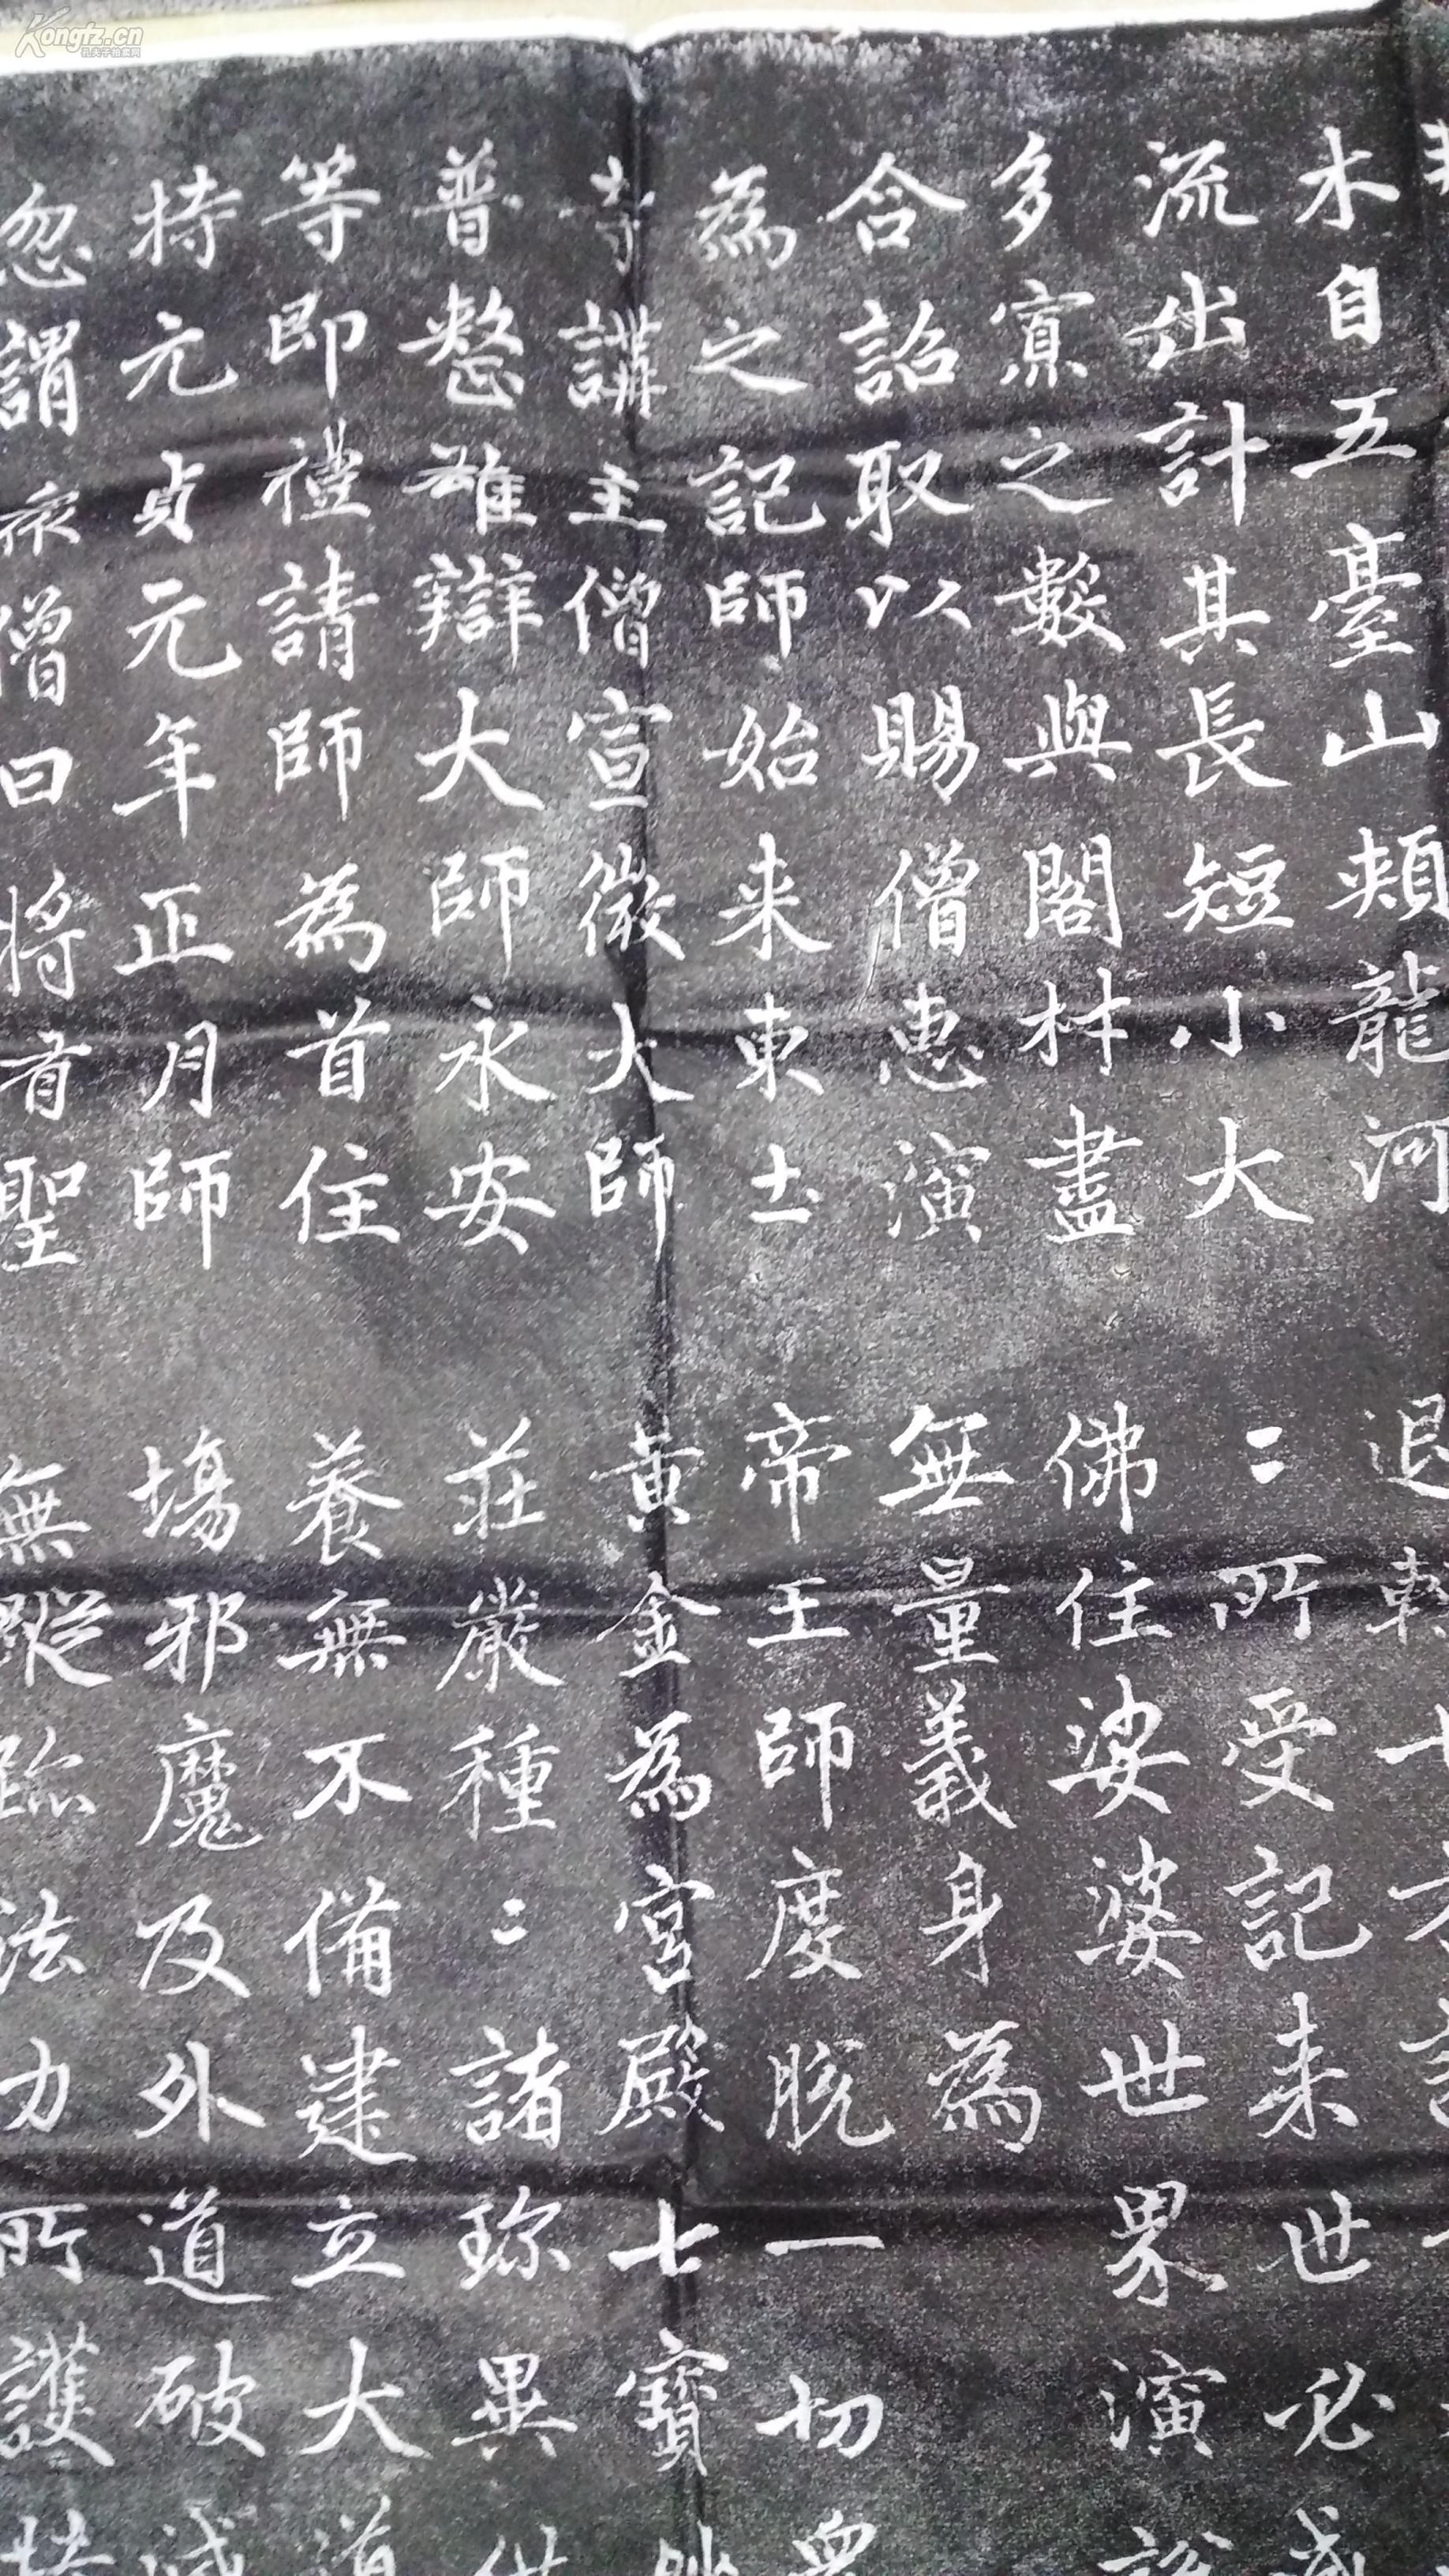 Kongfz.cn
水自五臺山頰龍河
流出計其長短小大
多寡之數與閣材盡
合詔取以賜僧惠演
為之記師始来東土
寺講主僧宣微大師
普整雄辯大師永安
等即禮請師為首住
持元貞元年正月師
忽謂衆僧曰将有聖
退轉
〻所受記来世必成
佛住娑婆世界演說
無量義身為
帝王師度脫一切眾
黃金為宮殿七寶妙
莊嚴種〻諸珎異供
養無不備建立大道
場邪魔及外道破滅
無蹤跡法力所護持